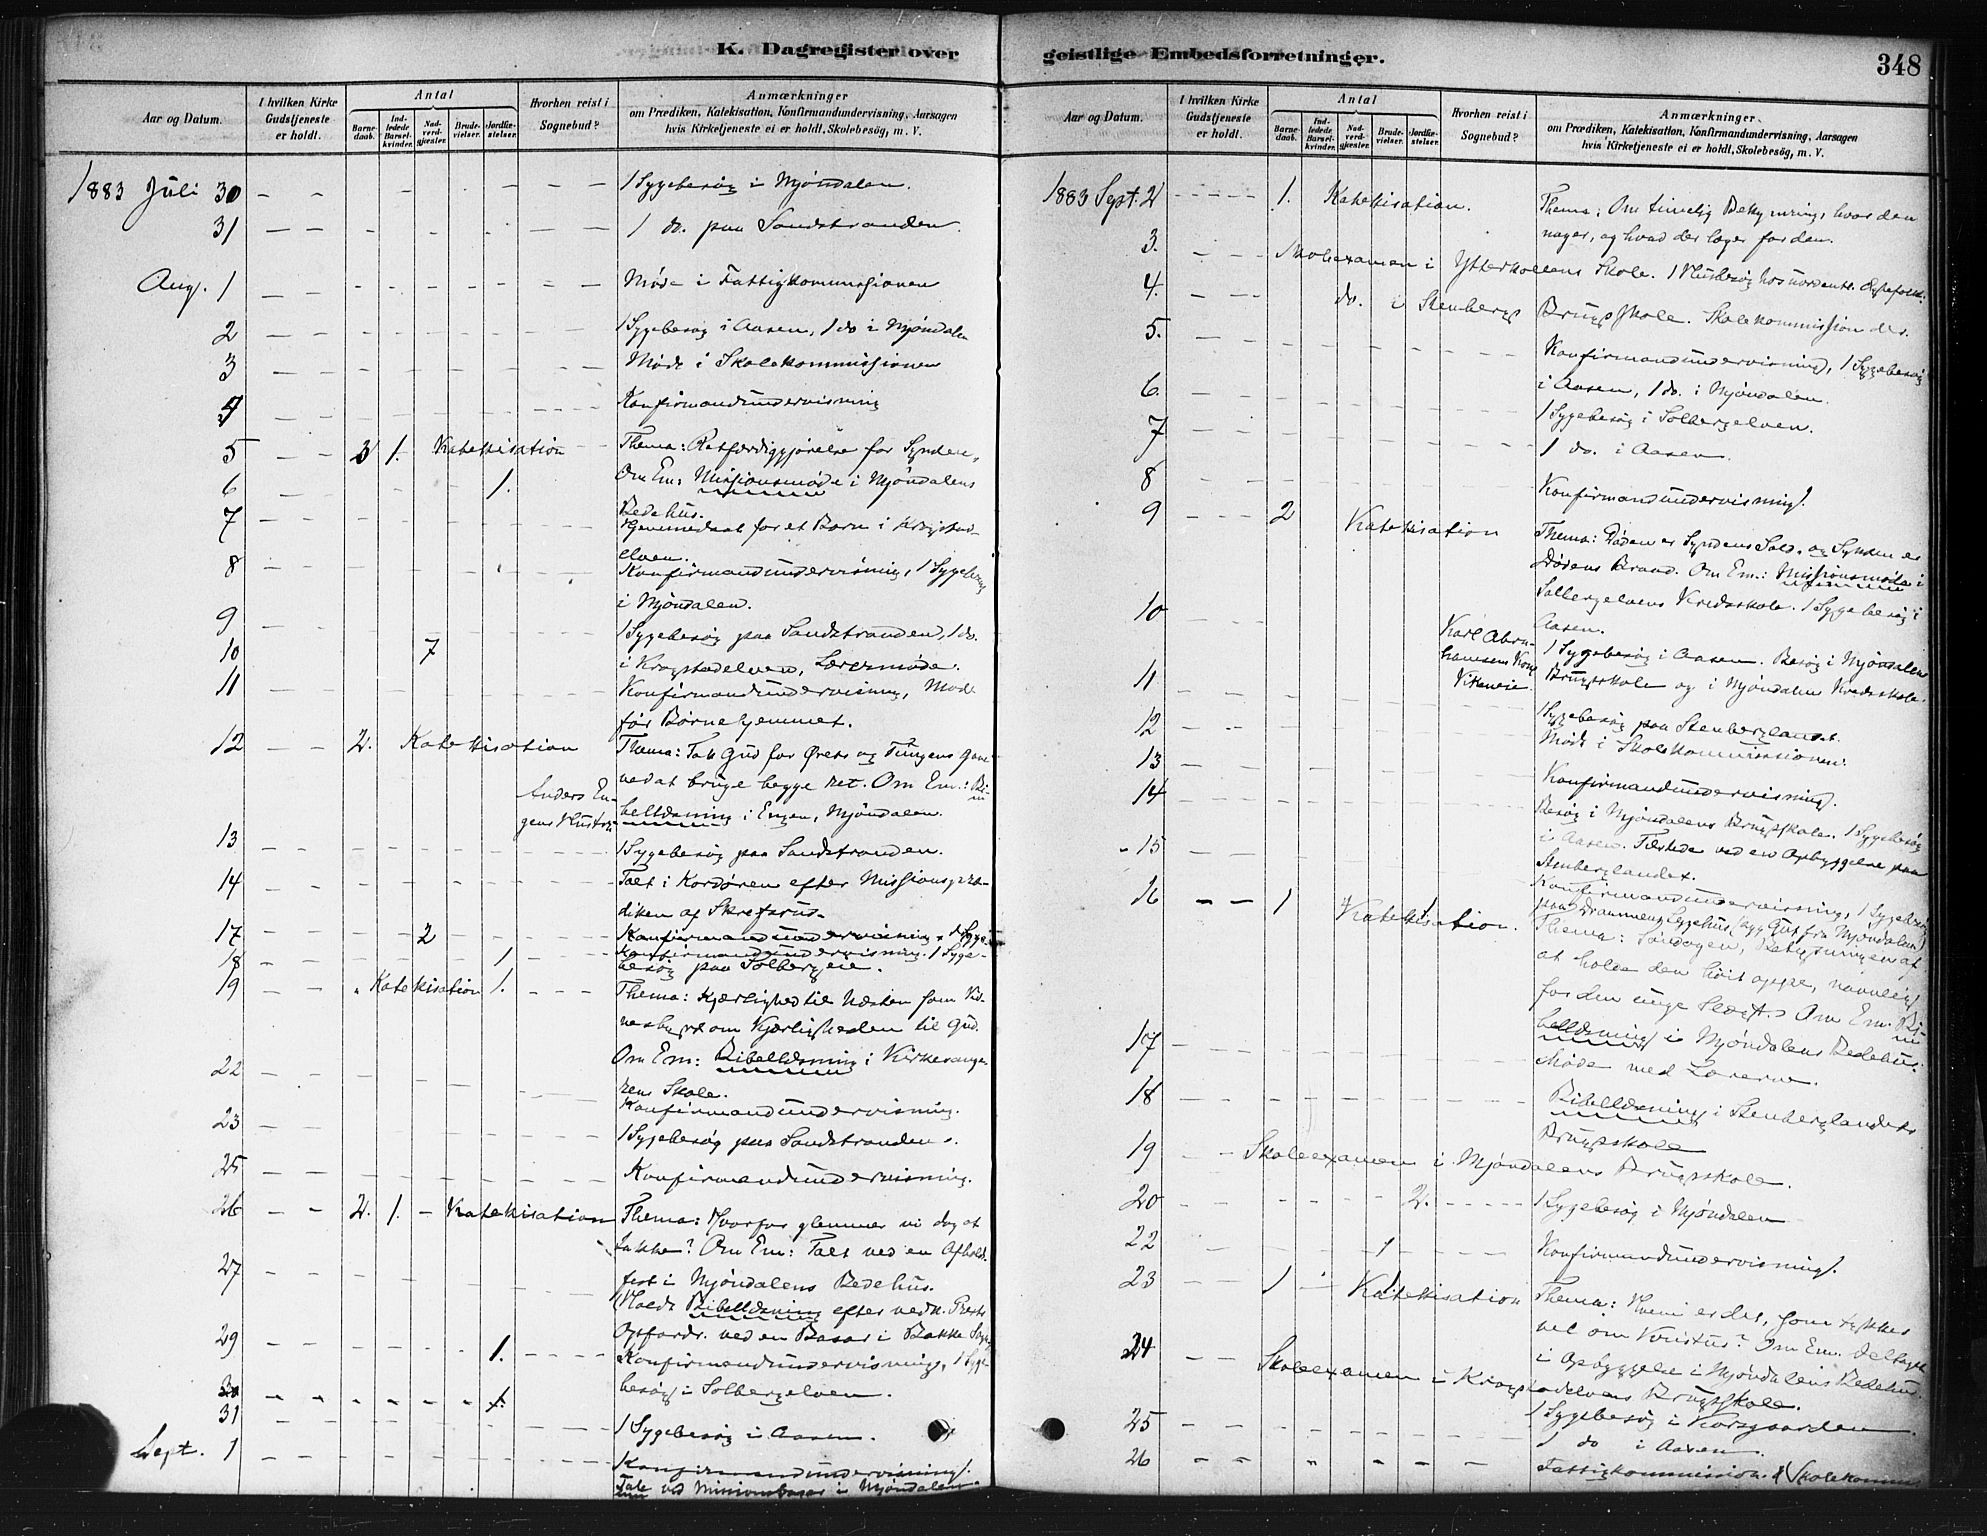 K. Dagregister over
Aar og Datum.
I hvilken Kirke Gudstjeneste er holdt.
Antal
Barnedaab.
Indledede Barselkvinder.
Nadverdgjæster.
Brudevielser.
Jordfæstelser.
Hvorhen reist i Sognebud?
Anmærkninger
om Prædiken, Katekisation, Konfirmandundervisning, Aarsagen
hvis Kirketjeneste ei er holdt, Skolebesög, m. V.
1883 Juli 30 1 Sygebesøg i Mjøndalen.
31 1 do. paa Sandstranden.
Aug. 1 Møde i Fattigkommissionen
2 1 Sygebesøg i Aasen, 1 do i Mjøndalen
3 Møde i Skolekommissionen
4 Konfirmandundervisning
5 3 1. Katekisation Thema: Retfærdiggjørelse for Synden.
6 1. Om Em: Missionsmøde i Mjøndalens
Bedehus.
7 Hjemmedaab for et Barn i Krogstad-
elven.
8 Konfirmandundervisning, 1 Sygebesøg
i Mjøndalen.
9 1 Sygebesøg paa Sandstranden, 1 do.
10 7 i Krogstadelven, Lærermøde.
11 Konfirmandundervisning, Møde
for Børnehjemmet.
12 2. Katekisation Thema: Tak Gud for Ørets og Tungens Gave
ved at bruge begge ret. Om Em: Bi-
Anders En-
gens Hustru
bellæsning i Engen, Mjøndalen.
13 1 Sygebesøg paa Sandstranden.
14 Talt i Kordøren efter Missionspræ-
diken af Skrefsrud.
17 2 Konfirmandundervisning
18 1 Konfirmandundervisning. 1 Syge-
besøg paa Solbergeie.
19 Katekisation 1. Thema: Kjærlighed til Næsten som Vid-
nesbyrd om Kjærligheden til Gud.
Om Em: Bibellæsning i Kirkevange-
22 rens Skole.
Konfirmandundervisning.
23 1 Sygebesøg paa Sandstranden.
25 Konfirmandundervisning.
26 2. 1. Katekisation Thema: Hvorfor glemmer vi dog at
takke? Om Em: Talt ved en Afholds
27 fest i Mjøndalens Bedehus.
Holdt Bibellæsning efter vedk. Prests
Opfordr. ved en Basar i Bakke Sogn
29 1. Konfirmandundervisning, 1 Syge-
besøg i Solbergelven.
30 1.
31 1 Sygebesøg i Aasen.
Sept. 1 Konfirmandundervisning.
Tale ved Missionsbasar i Mjøndalen
geistlige Embedsforretninger.
348
Aar og Datum.
I hvilken Kirke Gudstjeneste er holdt.
Antal
Barnedaab.
Indledede Barselkvinder.
Nadverdgjæster.
Brudevielser.
Jordfæstelser.
Hvorhen reist i Sognebud?
Anmærkninger.
om Prædiken, Katekisation, Konfirmandundervisning, Aarsagen
hvis Kirketjeneste ei er holdt, Skolebesög, m. V.
1883 Sept. 2 1. Katekisation. Thema: Om timelig Bekymring, hvor den
nager, og hvad der læger for den.
3. Skoleexamen i Ytterkollens Skole. 1 Husbesøg hos
4. do. i Stenbergs Brugsskole. Skolekommission der.
5. Konfirmandundervisning, 1 Sygebesøg
i Aasen, 1 do. i Mjøndalen.
6. 1 Sygebesøg i Solbergelven.
7 1 do. i Aasen.
8 Konfirmandundervisning.
9 2 Katekisation Thema: Døden er Syndens Sold, og Synden er
Dødens Braad. Om Em.: Missionsmøde i
Solbergelvens Kredsskole. 1 Sygebesøg i
Aasen.
10 Karl Abra-
hamsens Kone
Vikeneie.
1 Sygebesøg i Aasen. Besøg i Mjøndalens
Brugsskole og i Mjøndalens Kredsskole.
11 1 Sygebesøg paa Stenberglandet.
12 Møde i Skolekommissionen.
13 Konfirmandundervisning.
14 Besøg i Mjøndalens Brugsskole. 1 Sygebesøg
i Aasen. Tilstede ved en Opbyggelse paa
Stenberglandet.
15 Konfirmandundervisning, 1 Sygebesøg
paa Drammens Sygehus
16 1 1 Katekisation. Thema: Søndagen, Betydningen af
at holde den høit oppe, navnlig
for den unge Slægt. Om Em: Bi-
bellæsning i Mjøndalens Bedehus.
17 Møde med Lærerne.
18 Bibellæsning i Stenberglandets
Brugsskole
19 Skoleexamen i Mjøndalens Brugsskole.
20 2. 1 Sygebesøg i Mjøndalen
22 1 Konfirmandundervisning.
23 1 1 Katekisation Thema: Hvem er det, som tykkes
vel om Kristus? Om Em. deltaget
i Opbyggelse i Mjøndalens Bedehus.
24 Skoleexamen i Krogstadelvens Brugsskole.
25 1 Sygebesøg i Korsgaarden
1 do i Aasen.
26 Fattigkommission & Skolekomm